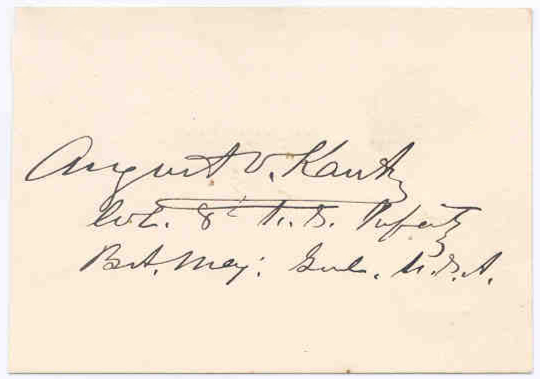 August V. Kautz
Col. 8th U.S. Infty
Bvt. Maj. Genl. U.S.A.